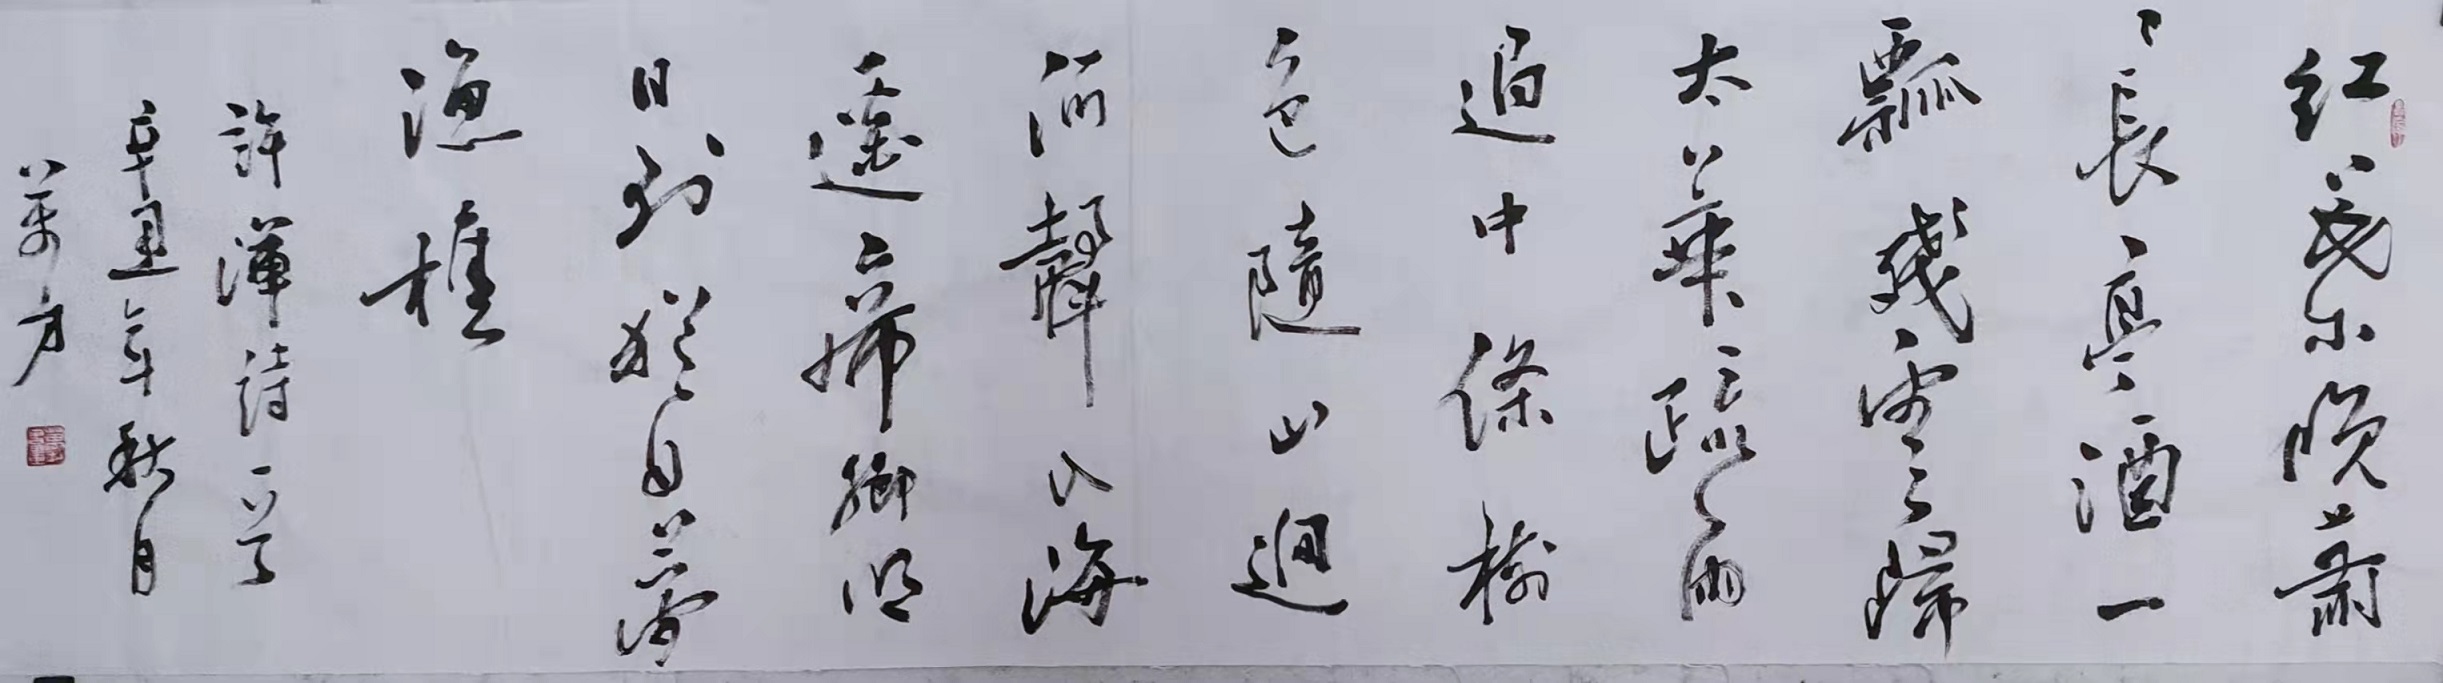 红葉晚蕭
〻長亭酒一
瓢殘雲歸
太華疏雨
追中條樹
色隨山迥
河聲入海
遙帝鄉明
日到猶自夢
漁樵
許渾詩一首
辛丑年秋月
萬方